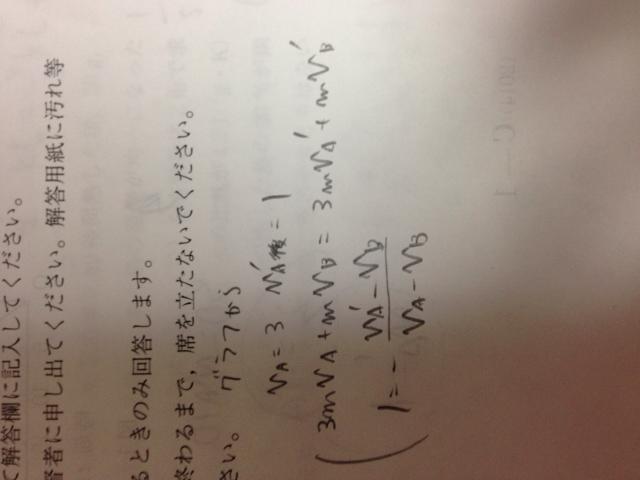 て解答欄に記入してください。
督者に申し出てください。解答用紙に汚れ等
るときのみ回答します。
終わるまで，席を立たないでください。
さい。
グラフから
V_A = 3 V_A'後 = 1
3mV_A + mV_B = 3mV_A' + mV_B'
1 = - (V_A' - V_B) / (V_A - V_B)